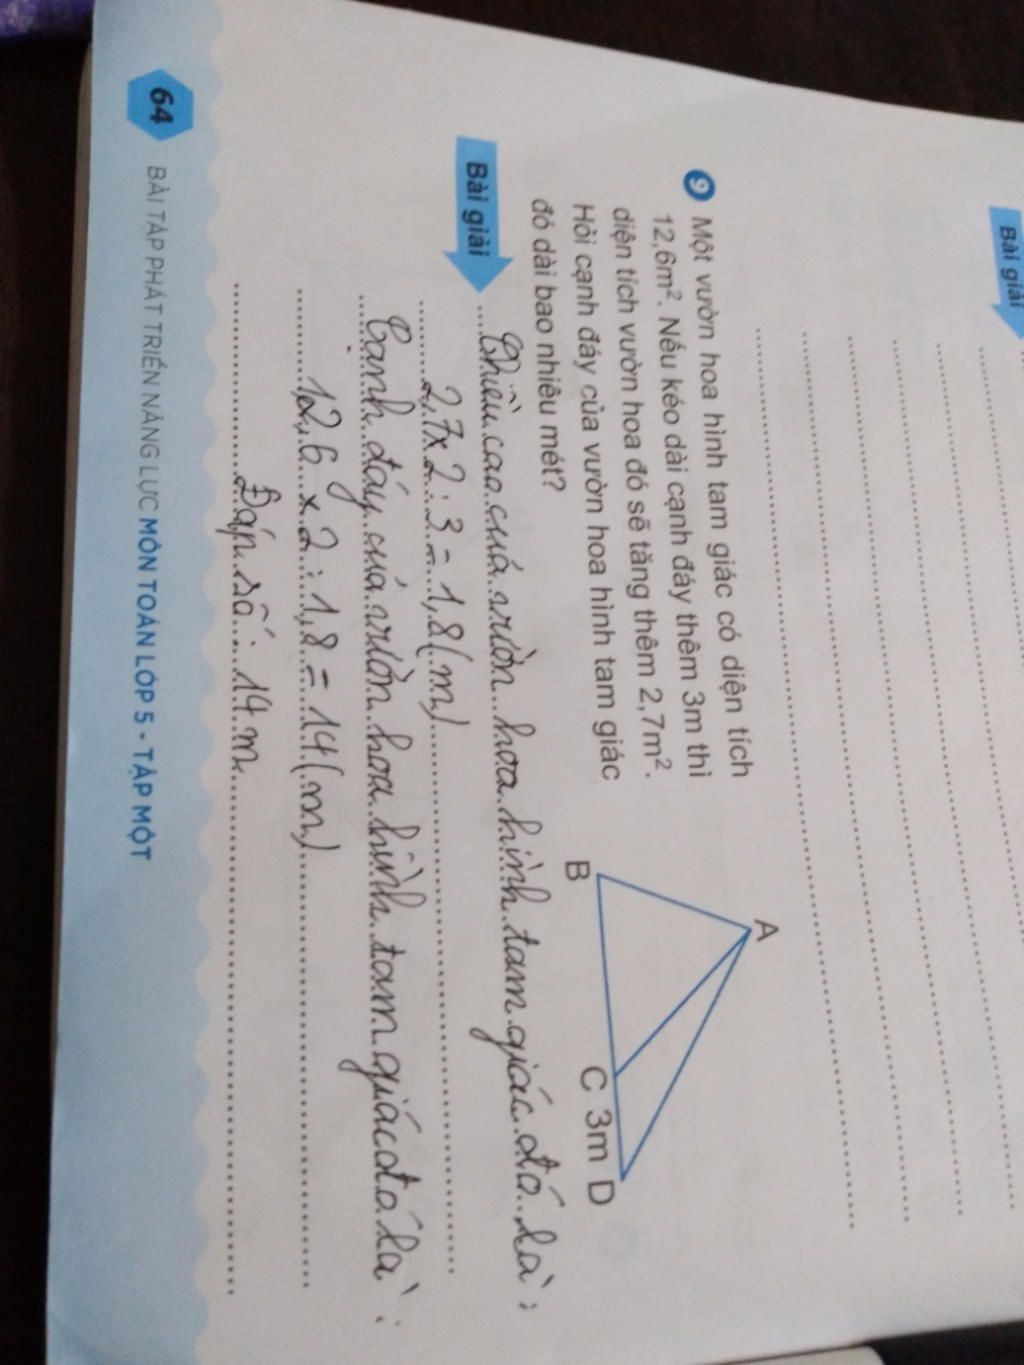 Bài giải
9 Một vườn hoa hình tam giác có diện tích
12,6m². Nếu kéo dài cạnh đáy thêm 3m thì
diện tích vườn hoa đó sẽ tăng thêm 2,7m².
Hỏi cạnh đáy của vườn hoa hình tam giác
đó dài bao nhiêu mét?
A
B
C 3m D
Bài giải
Chiều cao của vườn hoa hình tam giác đó là:
2,7 x 2 : 3 = 1,8 (m)
Cạnh đáy của vườn hoa hình tam giác đó là:
12,6 x 2 : 1,8 = 14 (m)
Đáp số: 14 m
64 BÀI TẬP PHÁT TRIỂN NĂNG LỰC MÔN TOÁN LỚP 5 - TẬP MỘT